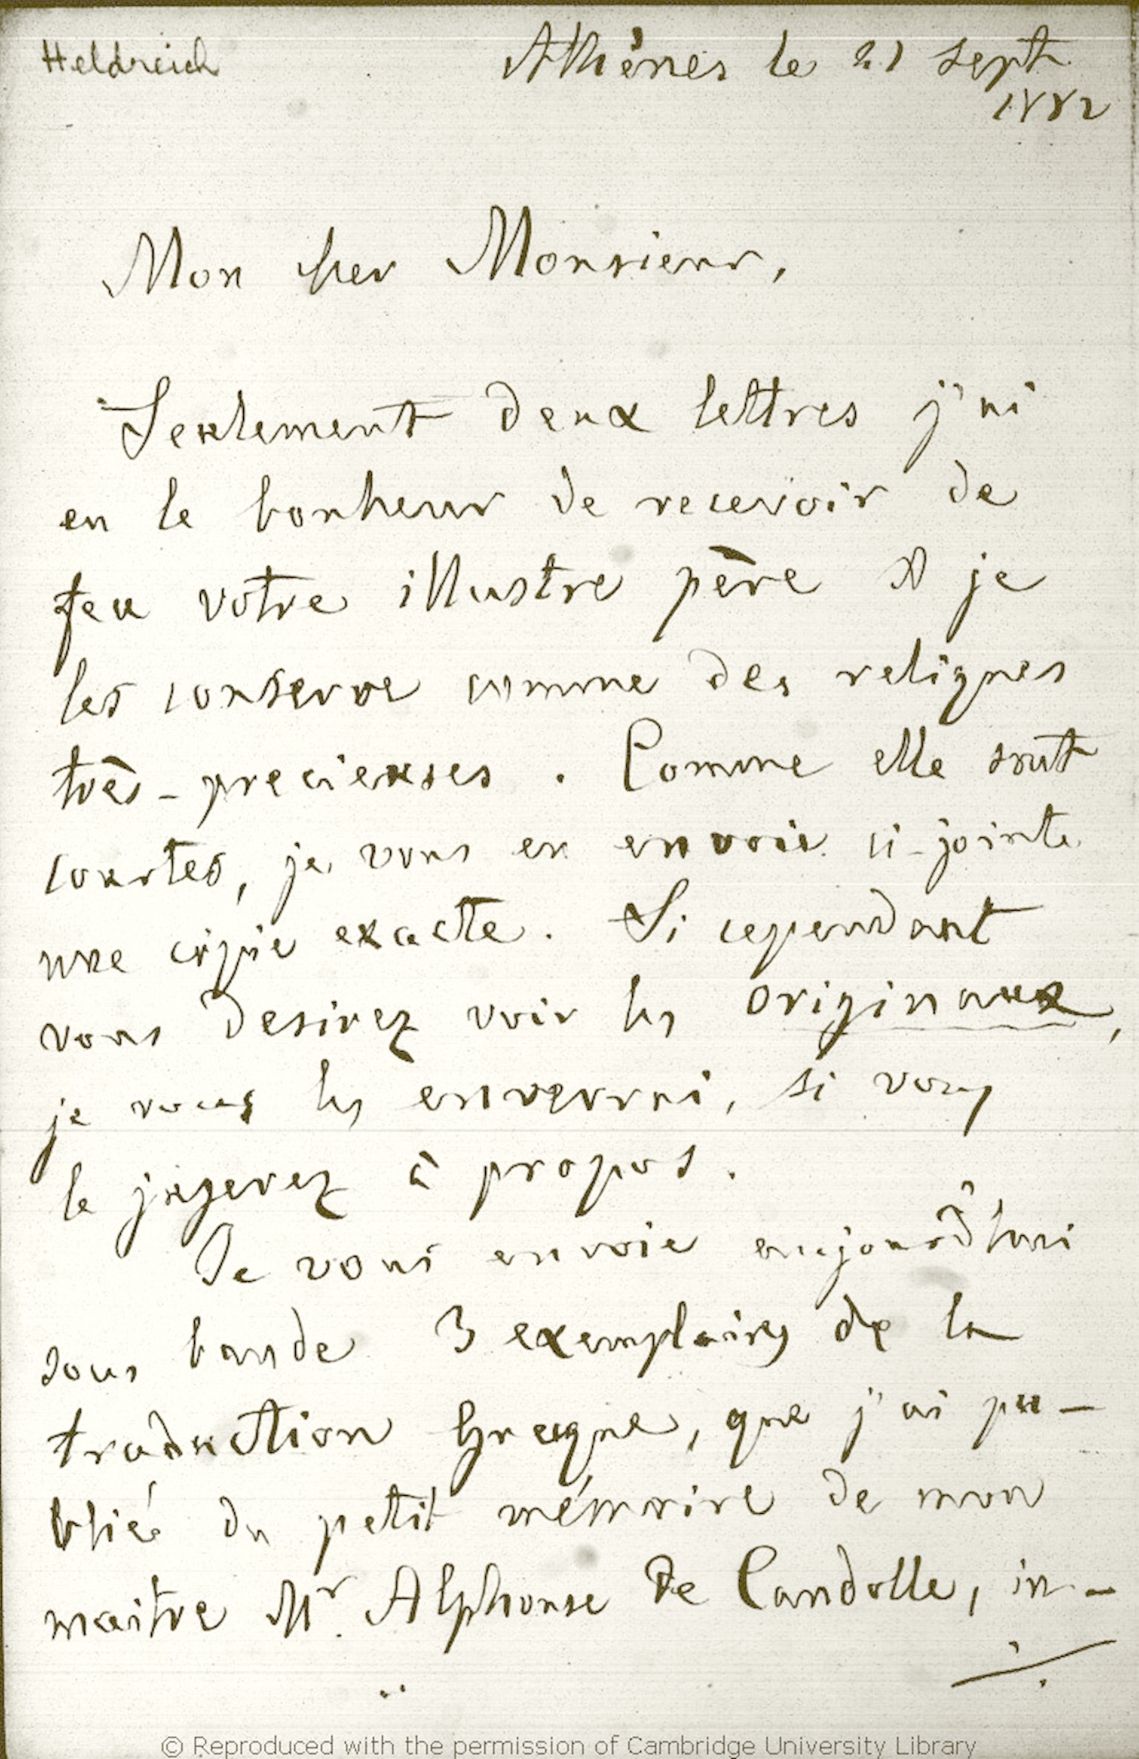 Heldreich
Athènes le 21 Sept
1882
Mon cher Monsieur,
Seulement deux lettres j'ai
eu le bonheur de recevoir de
feu votre illustre père & je
les conserve comme des reliques
très-precieuses. Comme elle sont
courtes, je vous en envoie ci-jointe
une copie exacte. Si cependant
vous desirez voir les originaux,
je vous les enverrai, si vous
le jugerez à propos.
Je vous envoie aujourd'hui
sous bande 3 exemplaires de la
traduction Grecque, que j'ai pu-
bliée du petit mémoire de mon
maitre Mr. Alphonse De Candolle, in-
./.
© Reproduced with the permission of Cambridge University Library